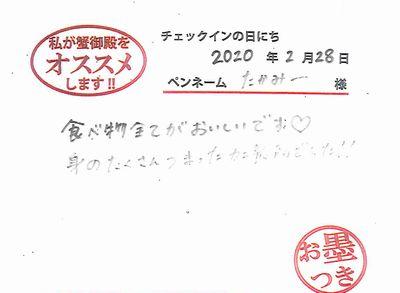 私が蟹御殿を
オススメ
します!!
チェックインの日にち
2020 年 2 月 28 日
ペンネーム たかみー 様
食べ物全てがおいしいです♡
身のたくさんつまったカニ
お墨
つき